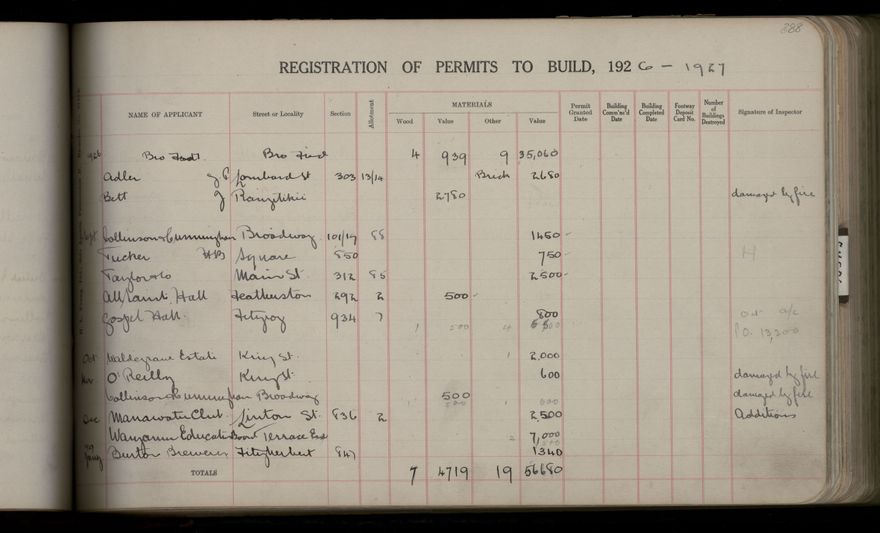 388
REGISTRATION OF PERMITS TO BUILD, 1926 - 1927
NAME OF APPLICANT Street or Locality Section Allotment MATERIALS Permit Granted Date Building Comm'nc'd Date Building Completed Date Footway Deposit Card No. Number of Buildings Destroyed Signature of Inspector
Wood Value Other Value
1926 Bro Fwd. Bro Fwd 4 939 9 35,060
Adler J P Lombard St 303 13/14 Brick 2680
Bett J Rangitikei 2780 damaged by fire
Sept Collinson & Cunningham Broadway 101/19 88 1450
Tucker HB Square 850 750 H
Taylor & Co Main St. 312 85 2500
All Saints Hall Featherston 292 2 500
Gospel Hall. Fitzroy 934 7 800
1 500 4
P.O. 13,200
Oct Waldegrave Estate King St. 1 2,000
Nov. O'Reilly King St 600 damaged by fire
Collinson & Cunningham Broadway 500 damaged by fire
500 1 600
Dec Manawatu Club Linton St. 836 2 2,500 Additions
Wanganui Education Board Terrace End 2 7,000
1927 Jany Burton Brewery Fitzherbert 847 1340
TOTALS 7 4719 19 56680